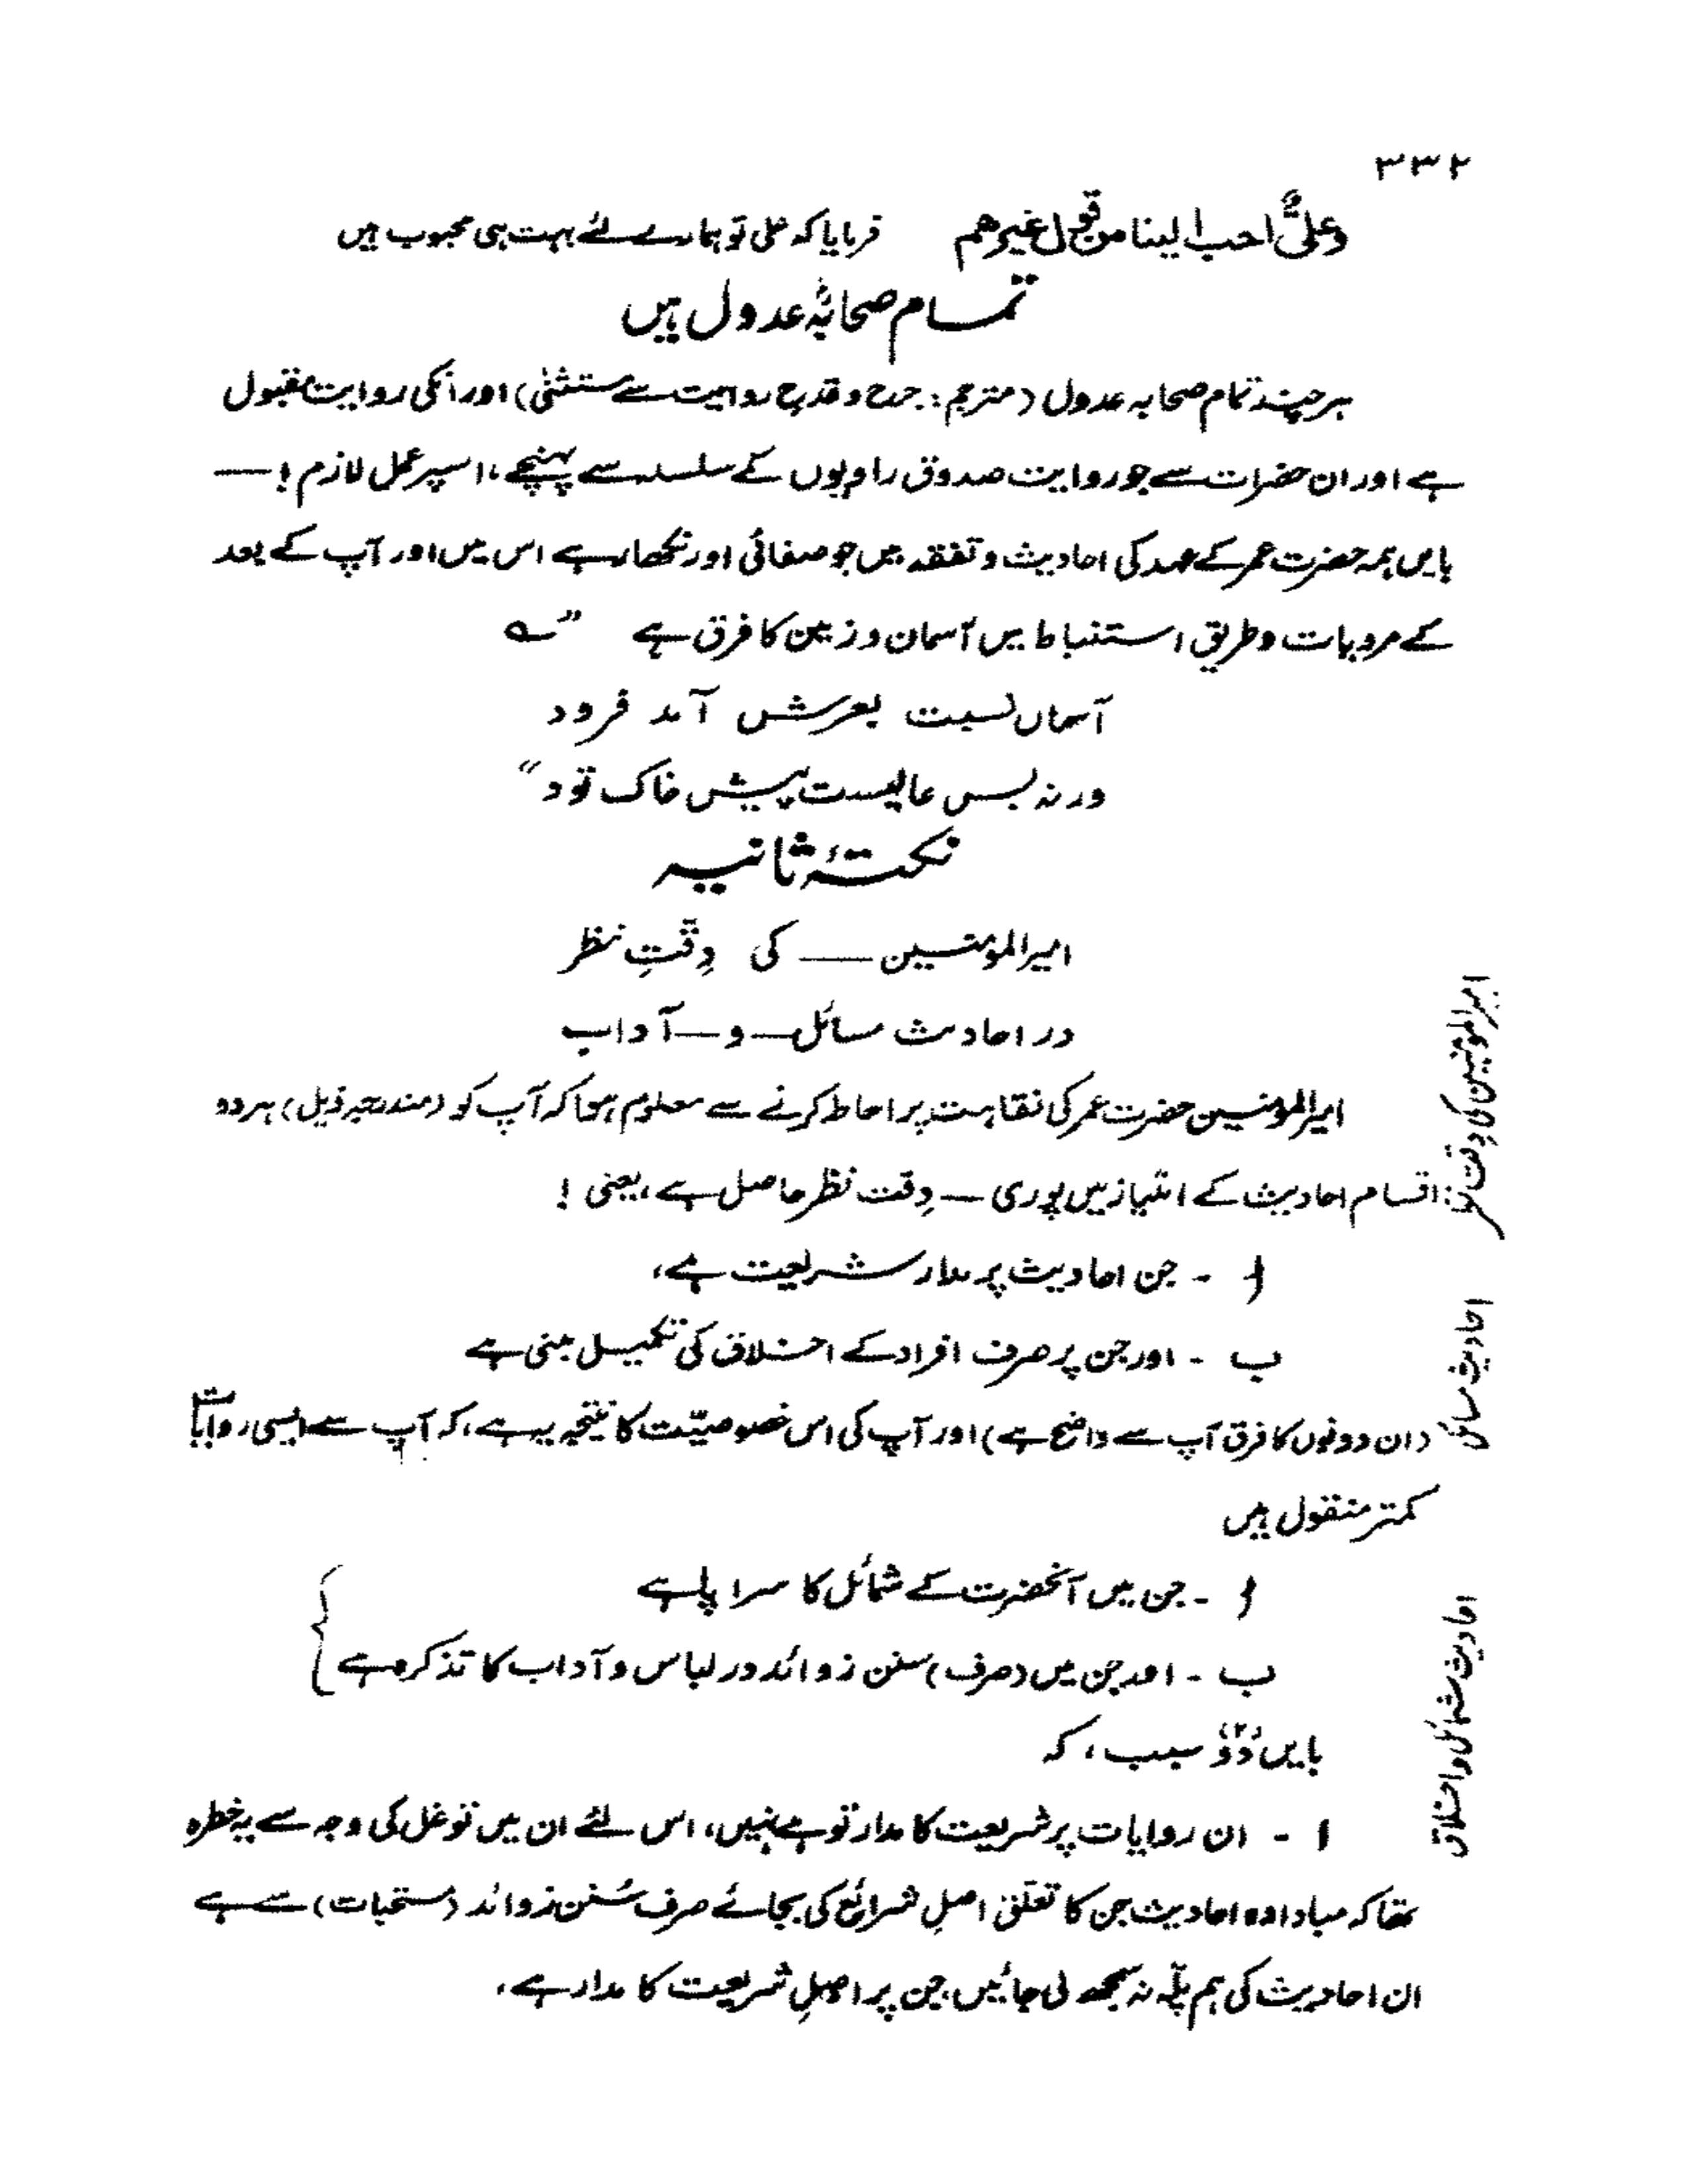 ۳۳۲
وعلیؓ احب الینا من قول غیرهم فرمایا کہ علی تو ہمارے لئے بہت ہی محبوب ہیں
تمام صحابہؓ عدول ہیں
ہر چند تمام صحابہ عدول (مترجم: جرح و قدح روایت سے مستثنیٰ) اور انکی روایت مقبول
ہے اور ان حضرات سے جو روایت صدوق راویوں کے سلسلہ سے پہنچے، اسپر عمل لازم! —
بایں ہمہ حضرت عمر کے عہد کی احادیث و تفقہ میں جو صفائی اور نکھار ہے اس میں اور آپ کے بعد
کے مرویات و طریق استنباط میں آسمان و زمین کا فرق ہے ”؎
آسماں نسبت بعرش آمد فرود
ورنہ بس عالیست پیش خاک تود“
نکتۂ ثانیہ
امیرالمؤمنین — کی دِقّتِ نظر
در احادیث مسائل — و — آداب
امیرالمؤمنین حضرت عمر کی نقاہت پر احاطہ کرنے سے معلوم ہوا کہ آپ کو (مندرجہ ذیل) ہر دو
اقسام احادیث کے امتیاز میں پوری — دِقت نظر حاصل ہے، یعنی!
امیرالمؤمنین کی دِقت نظر:
ا - جن احادیث پر مدار شریعت ہے،
ب - اور جن پر صرف افراد کے اخلاق کی تکمیل مبنی ہے
احادیث مسائل
(ان دونوں کا فرق آپ سے واضح ہے) اور آپ کی اس خصوصیّت کا نتیجہ یہ ہے، کہ آپ سے ایسی روایات
کمتر منقول ہیں
ا - جن میں آنحضرت کے شمائل کا سراپا ہے
ب - اور جن میں (صرف) سنن زوائد در لباس و آداب کا تذکرہ ہے }
احادیث شمائل و اخلاق
بایں دُوْ (۲) سبب، کہ
ا - ان روایات پر شریعت کا مدار تو ہے نہیں، اس لئے ان میں توغل کی وجہ سے یہ خطرہ
تھا کہ مبادا وہ احادیث جن کا تعلّق اصلِ شرائع کی بجائے صرف سُنن زوائد (مستحبات) سے ہے
ان احادیث کی ہم پلّہ نہ سمجھ لی جائیں، جن پر اصلِ شریعت کا مدار ہے،